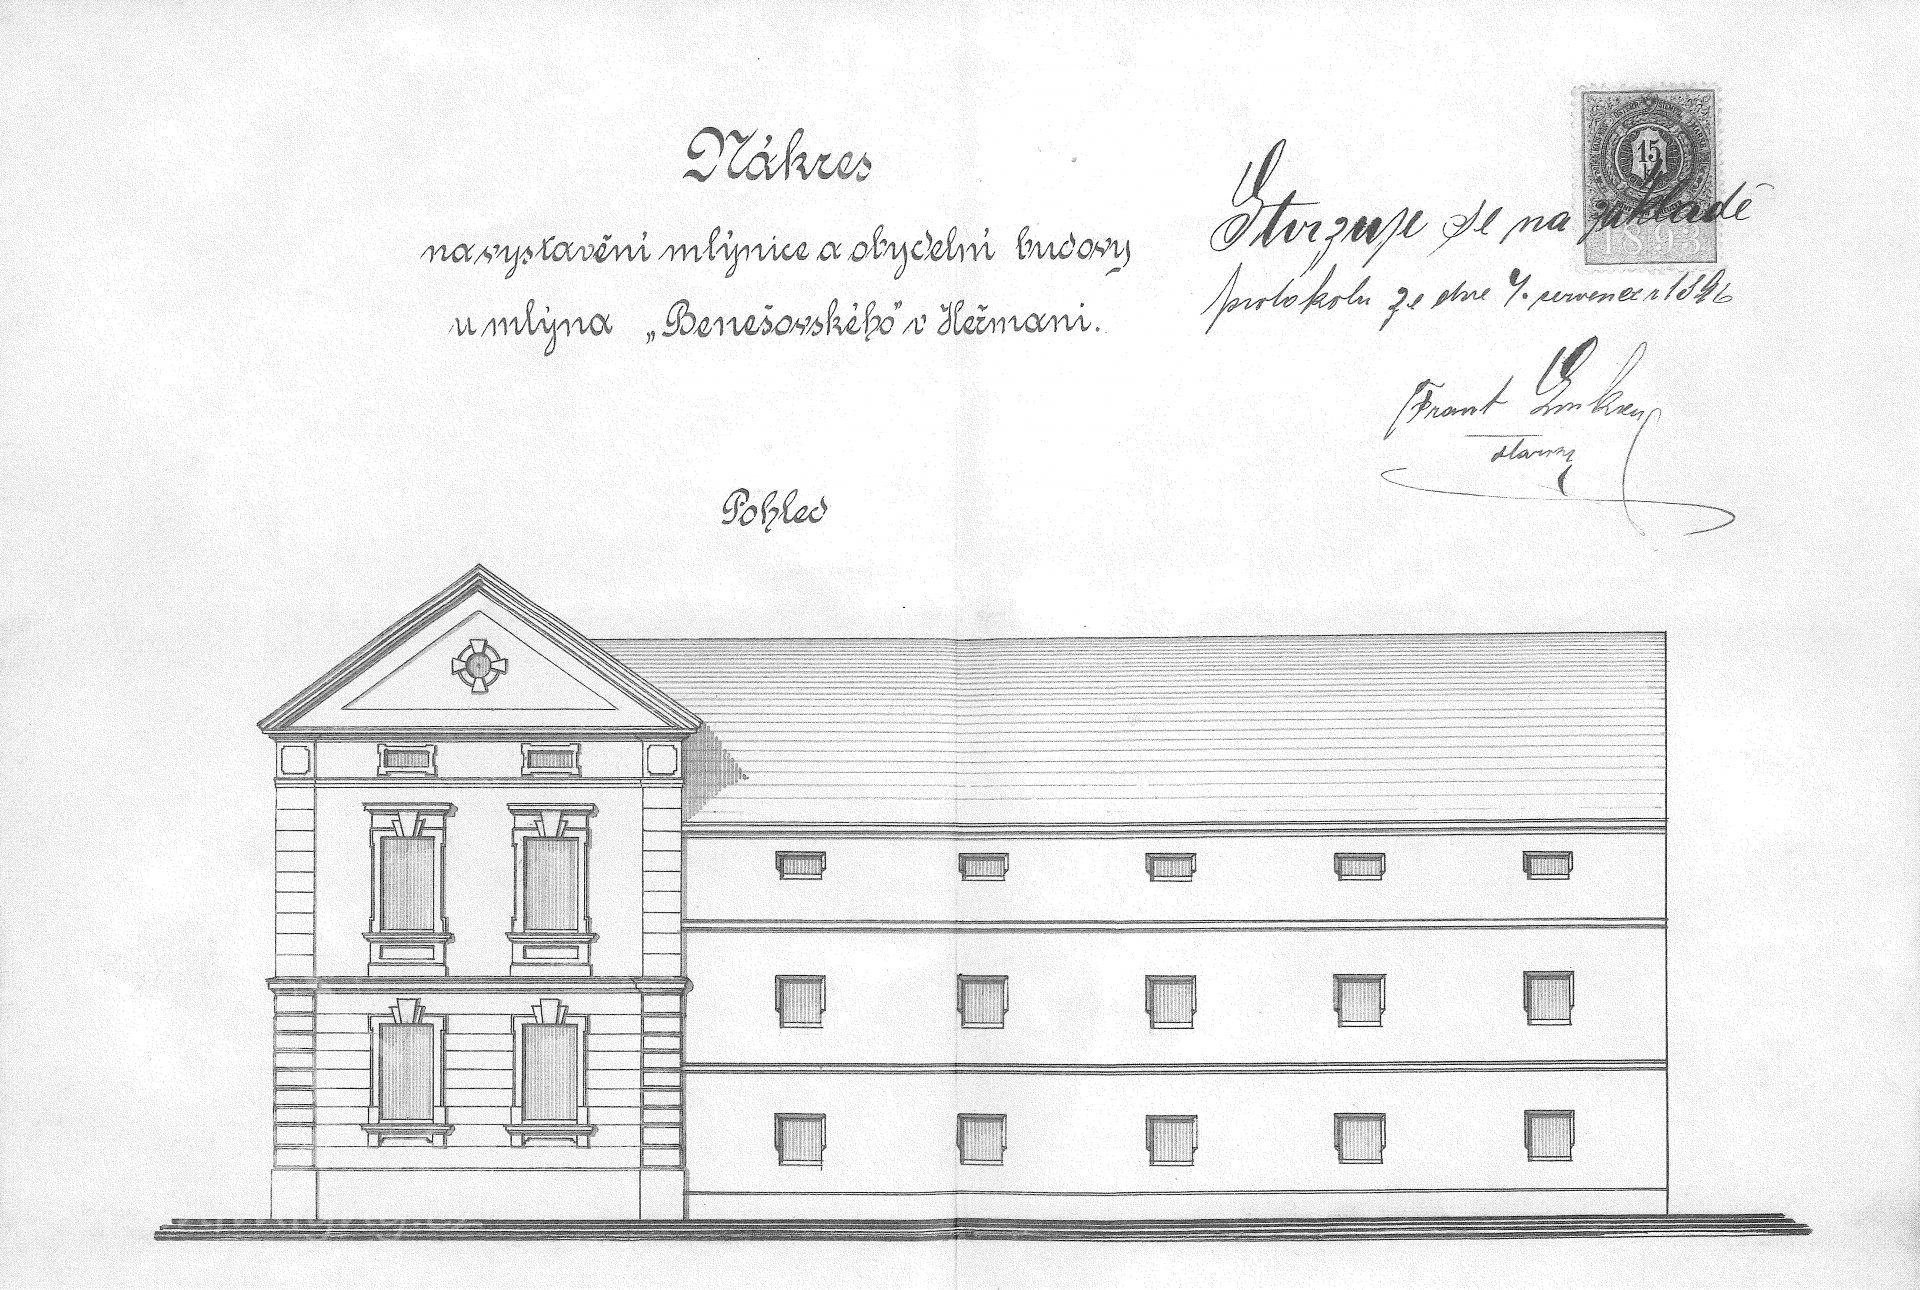 Nákres
na vystavění mlýnice a obydelní budovy
u mlýna „Benešovského" v Heřmani.
15
Stvrzuje se na základě
1893
protokolu ze dne 7. července 1896
Frant
Pohled